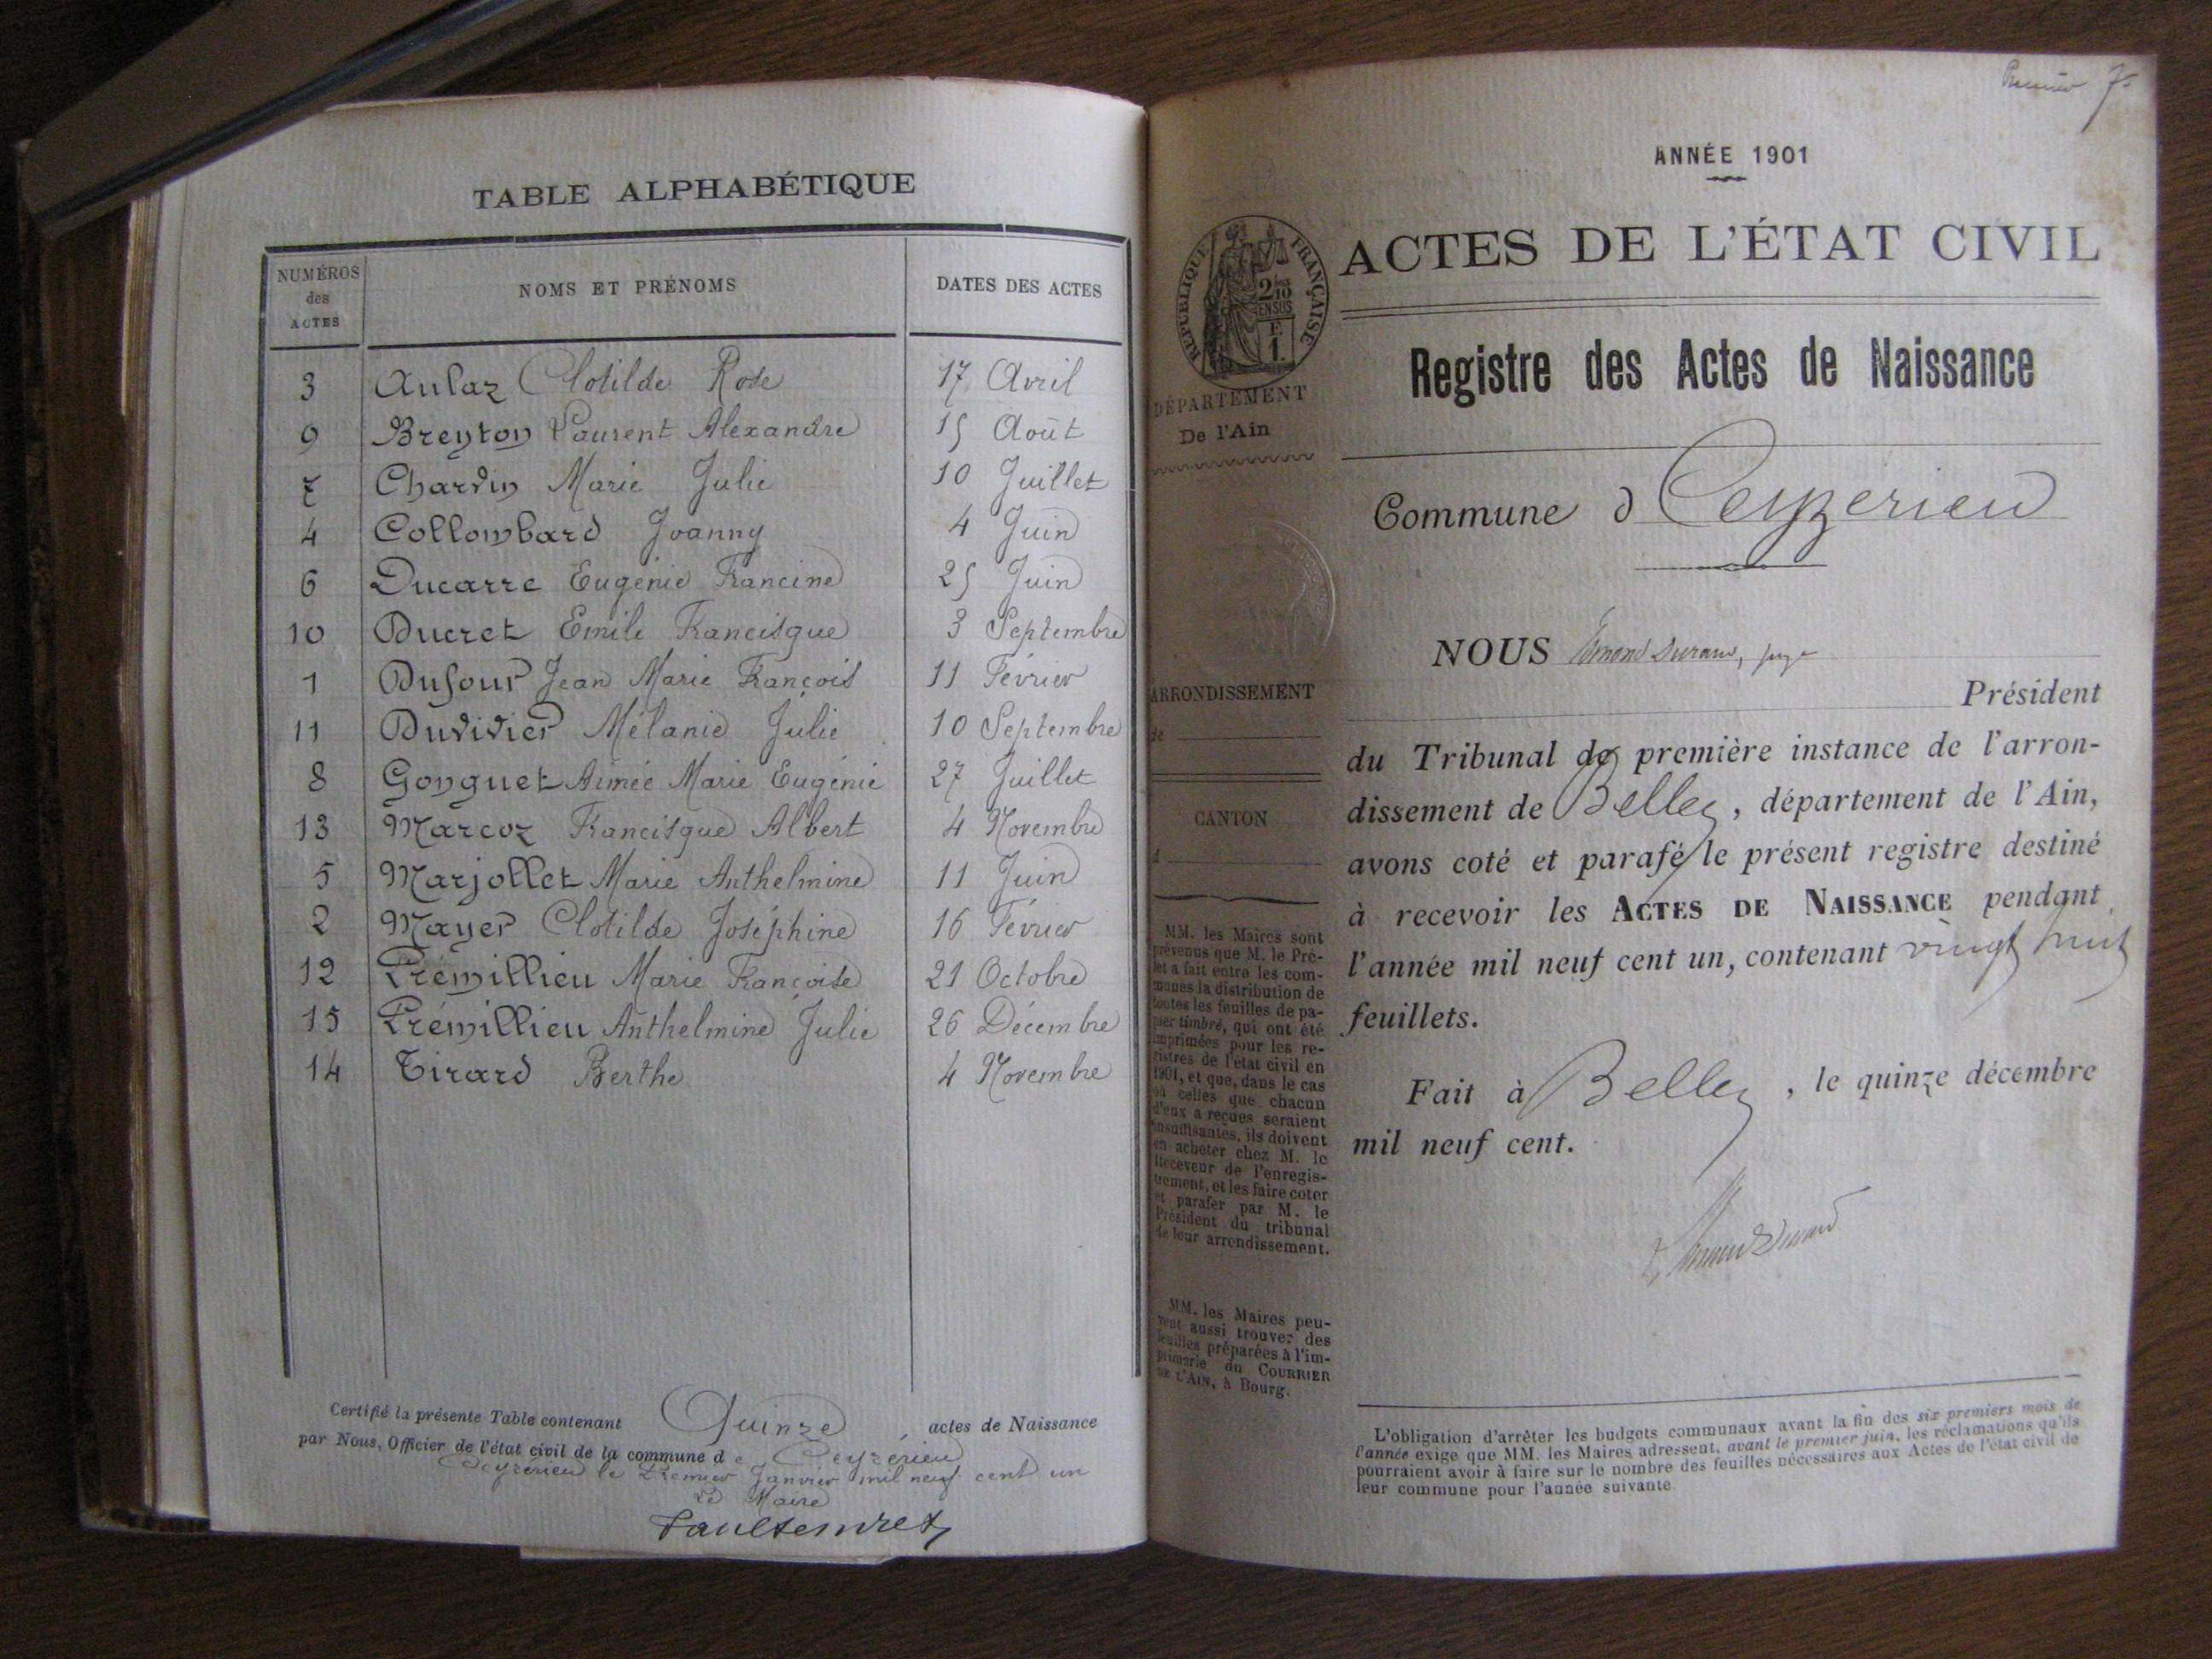 TABLE ALPHABÉTIQUE
NUMÉROS des ACTES
NOMS ET PRÉNOMS
DATES DES ACTES
3 Aulaz Clotilde Rose 17 Avril
9 Breyton Laurent Alexandre 15 Août
7 Chardin Marie Julie 10 Juillet
4 Collombard Joanny 4 Juin
6 Ducarre Eugénie Francine 25 Juin
10 Ducret Emile Francisque 3 Septembre
1 Dufour Jean Marie François 11 Février
11 Duvivier Mélanie Julie 10 Septembre
8 Gonguet Aimée Marie Eugénie 27 Juillet
13 Marcoz Francisque Albert 4 Novembre
5 Marjollet Marie Anthelmine 11 Juin
2 Mayer Clotilde Joséphine 16 Février
12 Prémillieu Marie Françoise 21 Octobre
15 Prémillieu Anthelmine Julie 26 Décembre
14 Tirard Berthe 4 Novembre
Certifié la présente Table contenant Quinze actes de Naissance
par Nous, Officier de l'état civil de la commune de Ceyzérieu
Ceyzerieu le Premier Janvier mil neuf cent un
Le Maire
Premier
ANNÉE 1901
ACTES DE L'ÉTAT CIVIL
RÉPUBLIQUE FRANÇAISE
2/10 EN SUS
F
1.
DÉPARTEMENT
De l'Ain
Registre des Actes de Naissance
Commune d Ceyzerieu
NOUS Durand, juge
Président
du Tribunal de première instance de l'arron-
dissement de Belley, département de l'Ain,
avons coté et parafé le présent registre destiné
à recevoir les ACTES DE NAISSANCE pendant
l'année mil neuf cent un, contenant vingt huit
feuillets.
Fait à Belley, le quinze décembre
mil neuf cent.
Durand
ARRONDISSEMENT
de
CANTON
d
MM. les Maires sont
prévenus que M. le Pré-
fet a fait entre les com-
munes la distribution de
toutes les feuilles de pa-
pier timbré, qui ont été
imprimées pour les re-
gistres de l'état civil en
1901, et que, dans le cas
où celles que chacun
d'eux a reçues seraient
insuffisantes, ils doivent
en acheter chez M. le
Receveur de l'enregis-
trement, et les faire coter
et parafer par M. le
Président du tribunal
de leur arrondissement.
MM. les Maires peu-
vent aussi trouver des
feuilles préparées à l'im-
primerie du COURRIER
DE L'AIN, à Bourg.
L'obligation d'arrêter les budgets communaux avant la fin des six premiers mois de
l'année exige que MM. les Maires adressent, avant le premier juin, les réclamations qu'ils
pourraient avoir à faire sur le nombre des feuilles nécessaires aux Actes de l'état civil de
leur commune pour l'année suivante.